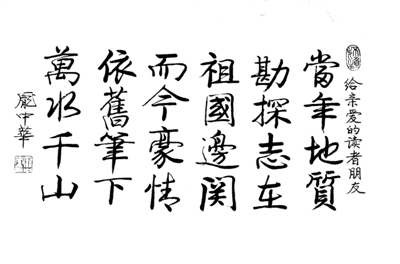 给亲爱的读者朋友
當年地質
勘探志在
祖國邊関
而今豪情
依舊筆下
萬水千山
龐中華